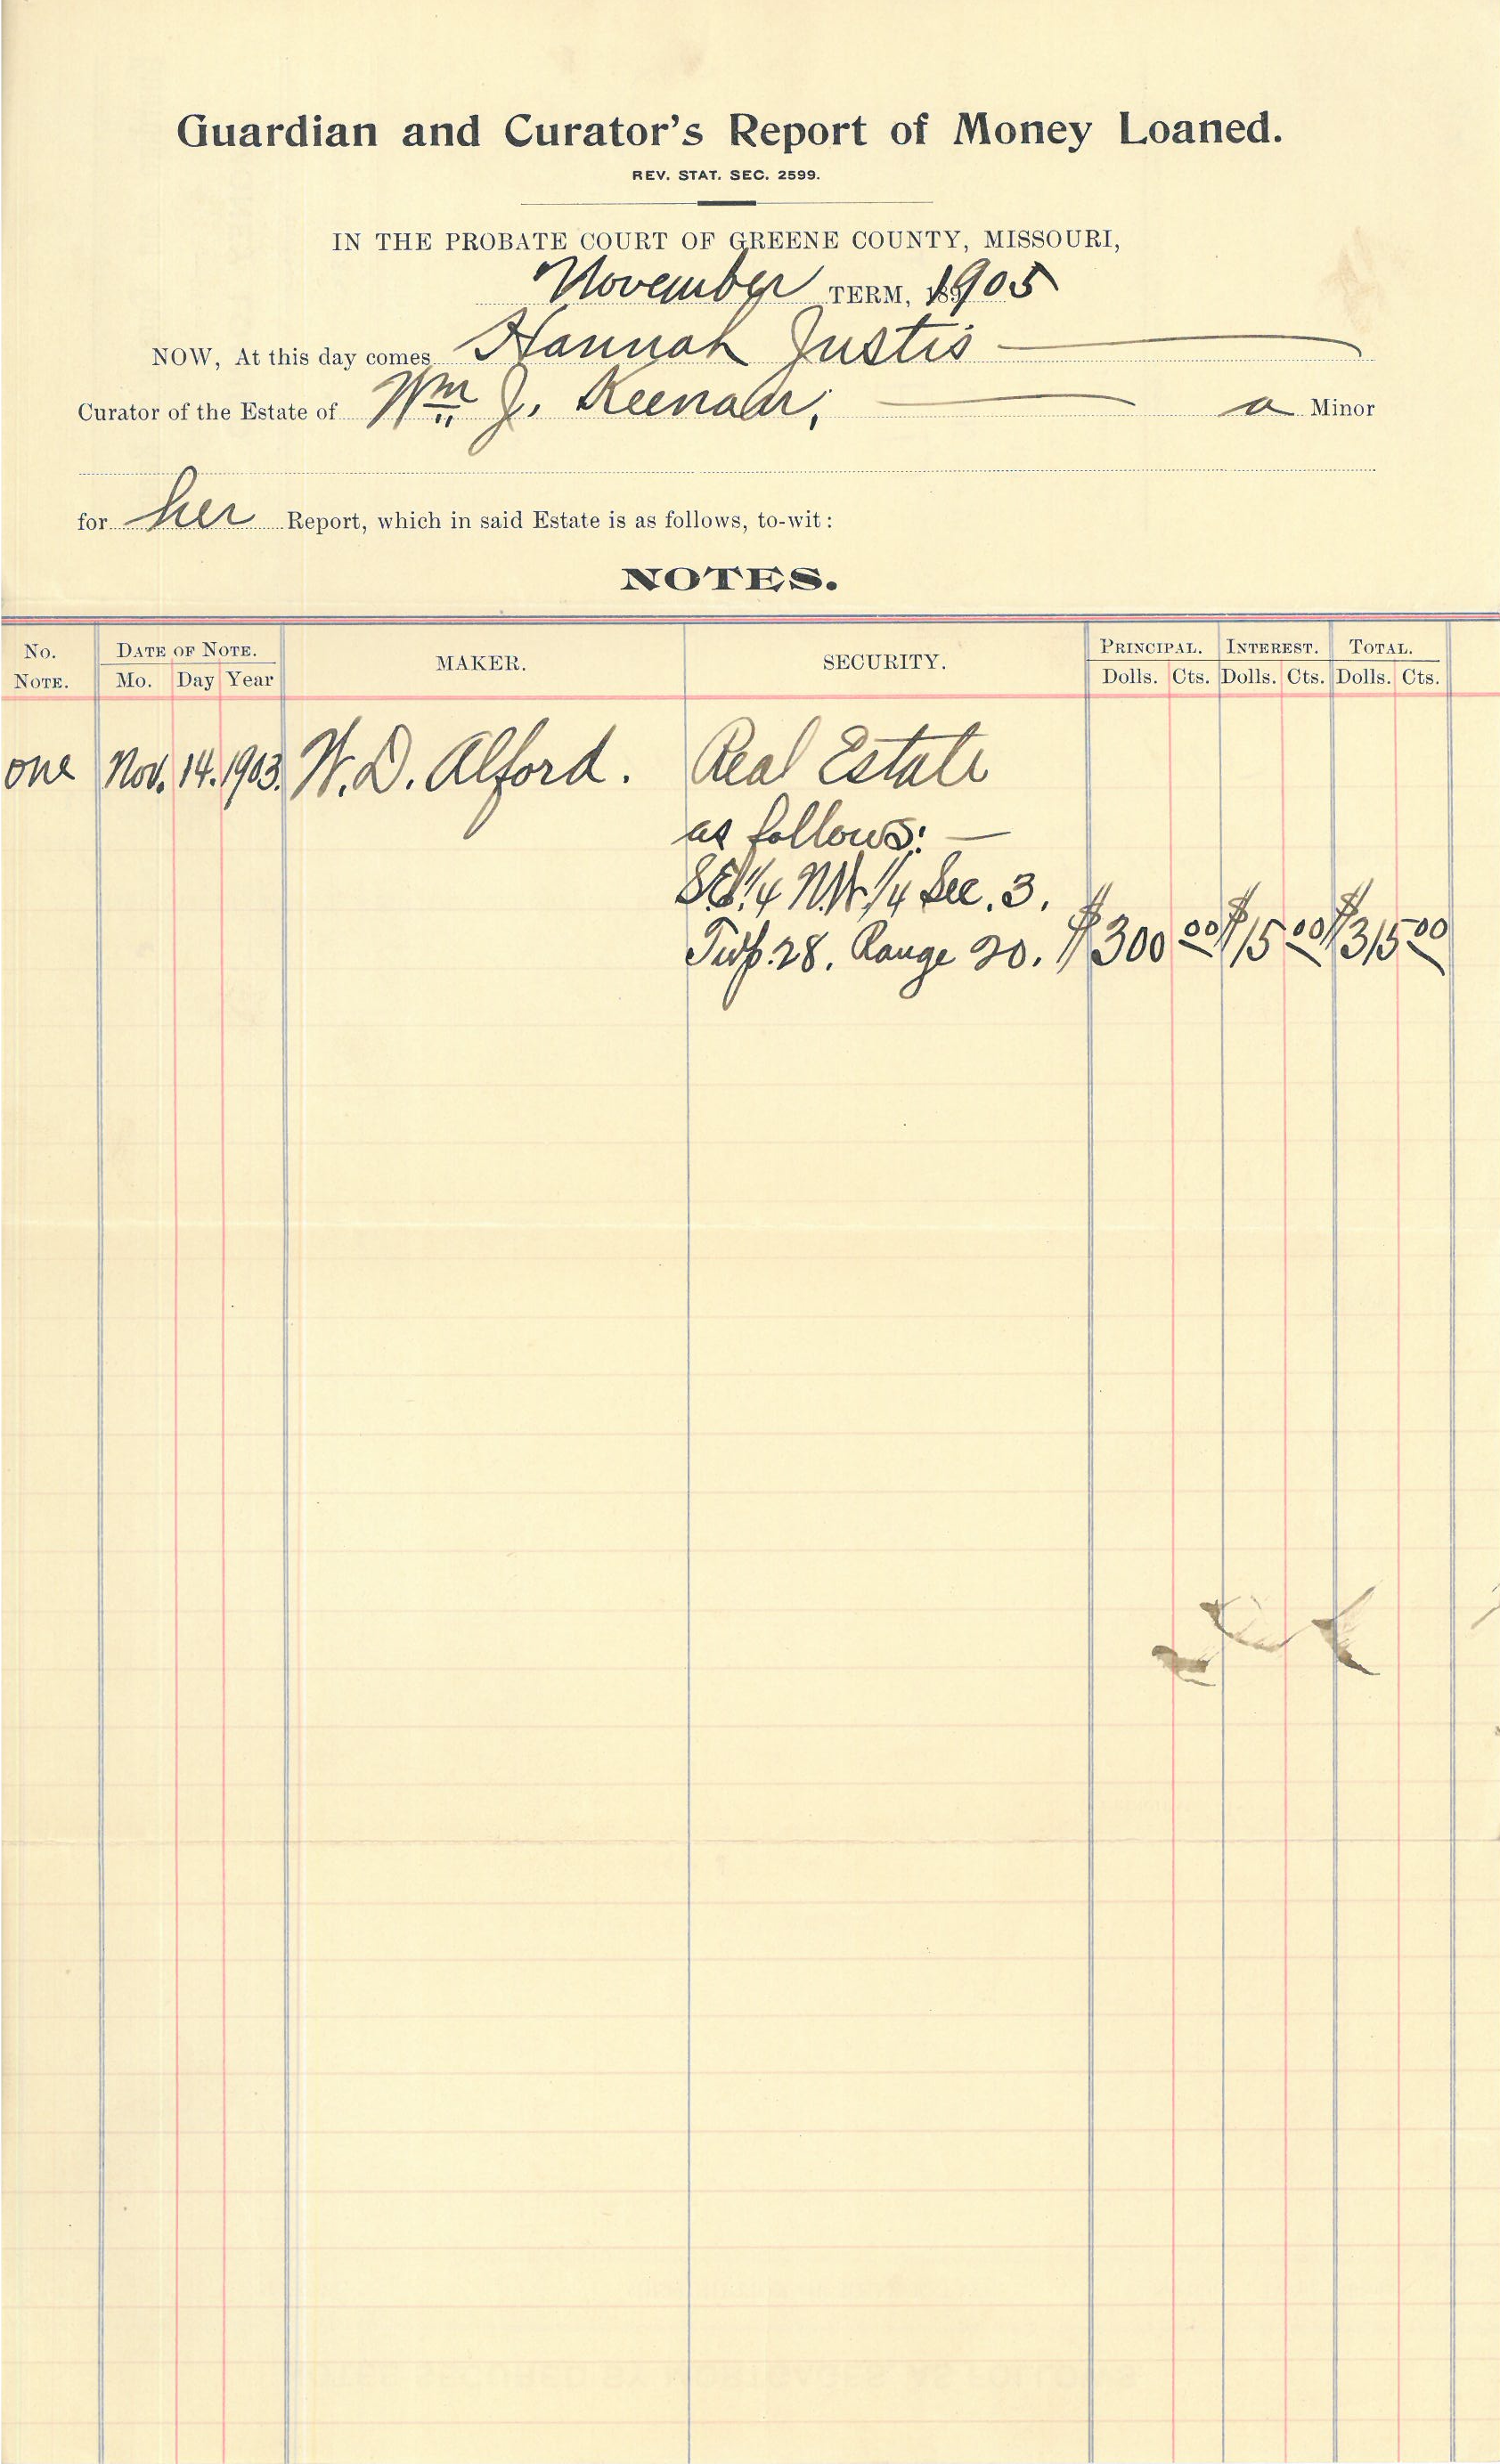 Guardian and Curator's Report of Money Loaned.
REV. STAT. SEC. 2599.
IN THE PROBATE COURT OF GREENE COUNTY, MISSOURI,
November TERM, 1905
NOW, At this day comes Hannah Justis
Curator of the Estate of Wm J. Keenan, a Minor
for her Report, which in said Estate is as follows, to-wit:
NOTES.
No. NOTE. DATE OF NOTE. Mo. Day Year MAKER. SECURITY. PRINCIPAL. Dolls. Cts. INTEREST. Dolls. Cts. TOTAL. Dolls. Cts.
one Nov. 14. 1903. W. D. Alford. Real Estate
as follows: —
SE 1/4 N.W. 1/4 Sec. 3.
Twp. 28. Range 20. $300 00 $15 00 $315 00